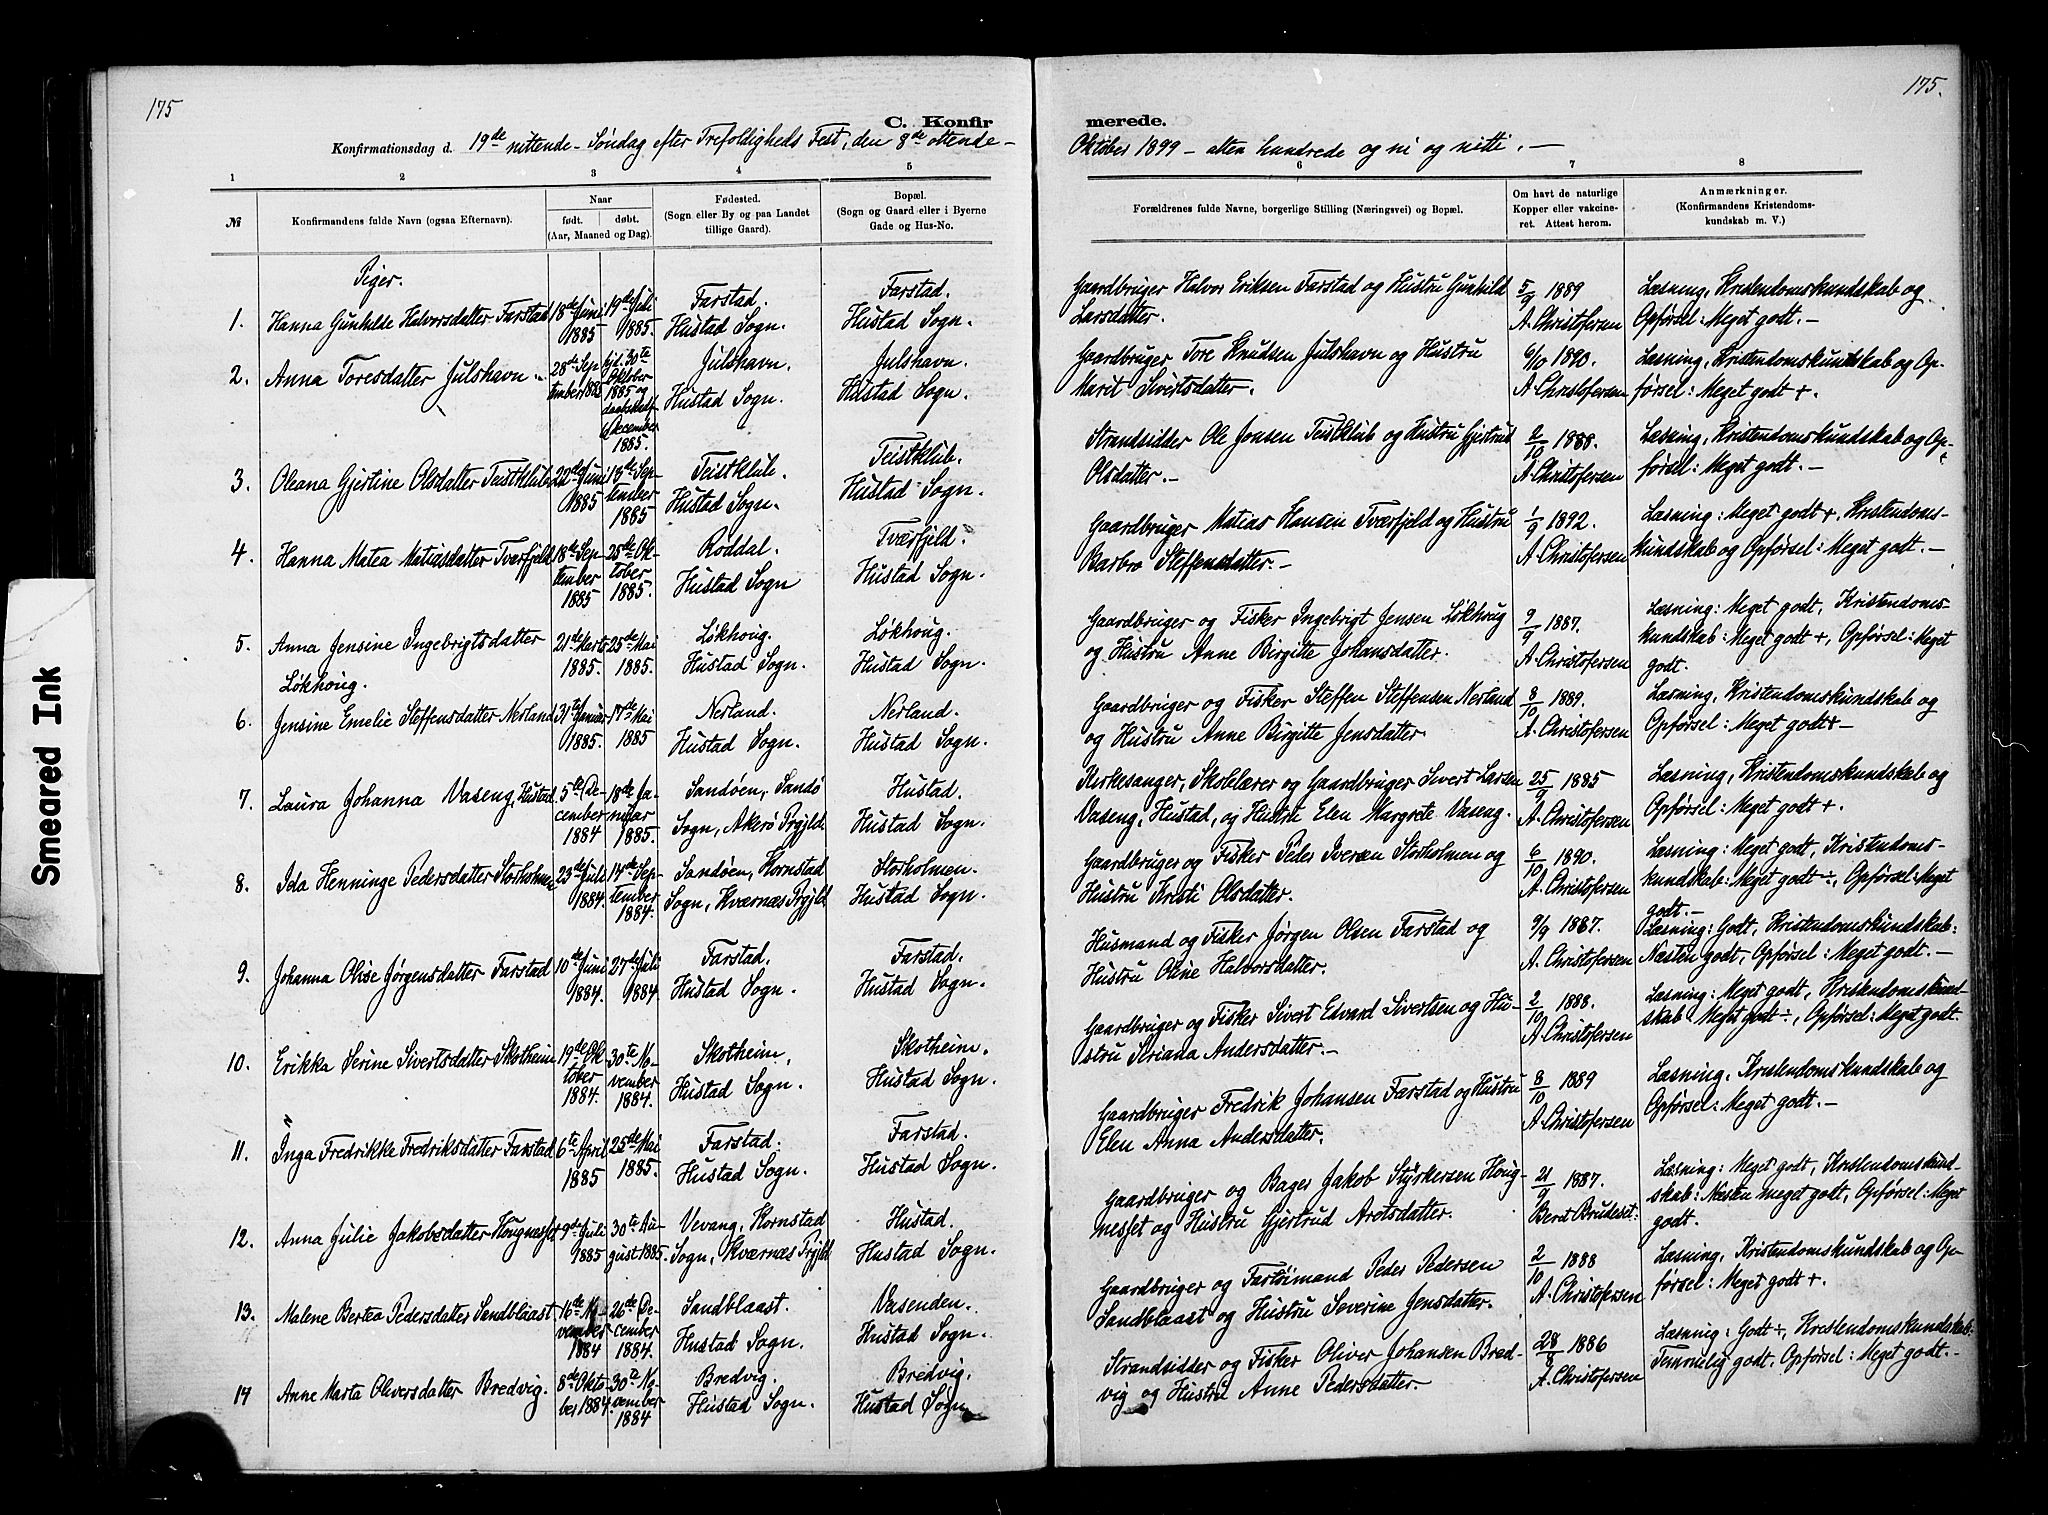 175
175.
C. Konfir
merede.
Konfirmationsdag d. 19de nittende - Søndag efter Trefoldigheds Fest, den 8de ottende -
Oktober 1899 - atten hundrede og ni og nitti. -
1 2 3 4 5
6 7 8
№
Konfirmandens fulde Navn (ogsaa Efternavn).
Naar
født. døbt.
(Aar, Maaned og Dag).
Fødested.
(Sogn eller By og paa Landet
tillige Gaard).
Bopæl.
(Sogn og Gaard eller i Byerne
Gade og Hus-No.
Forældrenes fulde Navne, borgerlige Stilling (Næringsvei) og Bopæl.
Om havt de naturlige
Kopper eller vakcine-
ret. Attest herom.
Anmærkninger.
(Konfirmandens Kristendoms-
kundskab m. V.)
Piger.
1. Hanna Gunhilde Halvorsdatter Farstad
18de Juni
1885
19de Juli
1885
Farstad.
Hustad Sogn.
Farstad.
Hustad Sogn.
Gaardbruger Halvor Eriksen Farstad og Hustru Gunhild
Larsdatter.
5/9 1889
A. Christofersen
Læsning, Kristendomskundskab og
Opførsel: Meget godt. -
2. Anna Toresdatter Julshavn.
28de Sep-
tember 1885
hjd. 30te
Oktober
1885 og
6 December
1885.
Julshavn.
Hustad Sogn.
Julshavn.
Hustad Sogn.
Gaardbruger Tore Knudsen Julshavn og Hustru
Marit Sivertsdatter.
6/10 1890.
A. Christofersen
Læsning, Kristendomskundskab og Op-
førsel: Meget godt +.
3. Oleana Gjertine Olsdatter Teistklub
22de Juni
1885
13de Sep-
tember
1885
Teistklub.
Hustad Sogn.
Teistklub.
Hustad Sogn.
Strandsidder Ole Jonsen Teistklub og Hustru Gjertrud
Olsdatter. -
2/10 1888.
A. Christofersen
Læsning, Kristendomskundskab og Op-
førsel: Meget godt. -
4. Hanna Matea Matiasdatter Tverfjeld
18de Sep-
tember
1885
25de Ok-
tober
1885.
Roddal.
Hustad Sogn
Tværfjeld.
Hustad Sogn.
Gaardbruger Matias Hansen Tværfjeld og Hustru
Barbro Steffensdatter. -
1/9 1892.
A. Christofersen
Læsning: Meget godt +, Kristendoms-
kundskab og Opførsel: Meget godt. -
5. Anna Jensine Ingebrigtsdatter
Løkhoug.
21de Marts
1885.
25de Mai
1885.
Løkhoug.
Hustad Sogn.
Løkhoug.
Hustad Sogn.
Gaardbruger og Fisker Ingebrigt Jensen Løkhoug
og Hustru Anne Birgitte Johansdatter.
9/9 1887.
A. Christofersen
Læsning: Meget godt, Kristendoms-
kundskab: Meget godt +, Opførsel: Meget
godt.
6. Jensine Emelie Steffensdatter Nerland
31te Januar
1885.
17de Mai
1885
Nerland.
Hustad Sogn.
Nerland.
Hustad Sogn.
Gaardbruger og Fisker Steffen Steffensen Nerland
og Hustru Anne Birgitte Jensdatter.
8/10 1889.
A. Christofersen
Læsning, Kristendomskundskab og
Opførsel: Meget godt + -
7. Laura Johanna Vaseng, Hustad
5te De-
cember
1884
18de Ja-
nuar
1885.
Sandøen, Sandø
Sogn, Akerø Prgjld.
Hustad.
Hustad Sogn.
Kirkesanger, Skolelærer og Gaardbruger Sivert Larsen
Vaseng, Hustad, og Hustru Elen Margrete Vaseng.
25/9 1885
A. Christofersen
Læsning, Kristendomskundskab og
Opførsel: Meget godt +.
8. Ida Henninge Pedersdatter Storholmen
23de Juli
1884.
14de Sep-
tember
1884.
Sandøen, Kornstad
Sogn, Kværnæs Prgjld
Storholmen.
Hustad Sogn.
Gaardbruger og Fisker Peder Iversen Storholmen og
Hustru Kristi Olsdatter.
6/10 1890.
A. Christofersen
Læsning: Meget godt, Kristendoms-
kundskab: Meget godt ÷, Opførsel: Meget
godt. -
9. Johanna Olise Jørgensdatter Farstad
10de Juni
1884.
27de Juli
1884
Farstad.
Hustad Sogn.
Farstad.
Hustad Sogn.
Husmand og Fisker Jørgen Olsen Farstad og
Hustru Oline Halvorsdatter.
9/9 1887
A. Christofersen
Læsning: Godt, Kristendomskundskab:
Næsten godt, Opførsel: Meget godt. -
10. Erikka Serine Sivertsdatter Skotheim
19de Ok-
tober
1884.
30te No-
vember
1884.
Skotheim,
Hustad Sogn.
Skotheim.
Hustad Sogn.
Gaardbruger og Fisker Sivert Edvard Sivertsen og Hu-
stru Seriana Andersdatter. -
2/10 1888.
A. Christofersen
Læsning: Meget godt, Kristendomskund-
skab: Meget godt ÷, Opførsel: Meget godt.
11. Inga Fredrikke Fredriksdatter Farstad
6te April
1885
25de Mai
1885.
Farstad.
Hustad Sogn.
Farstad.
Hustad Sogn.
Gaardbruger Fredrik Johansen Farstad og Hustru
Elen Anna Andersdatter.
8/10 1889
A. Christofersen
Læsning, Kristendomskundskab og
Opførsel: Meget godt. -
12. Anna Julie Jakobsdatter Hougnesset
9de Juli
1885
30te Au-
gust 1885.
Vevang, Kornstad
Sogn, Kværnæs Prgjld
Hustad.
Hustad Sogn.
Gaardbruger og Bager Jakob Styrkersen Houg-
nesset og Hustru Gjertrud Aretsdatter.
21/9 1887.
Berdt Brudeset:
Læsning: Meget godt, Kristendomskund-
skab: Næsten meget godt, Opførsel: Meget
godt.
13. Malene Bertea Pedersdatter Sandblaast
16de No-
vember
1884
26de De-
cember
1884.
Sandblaast.
Hustad Sogn.
Vasenden.
Hustad Sogn.
Gaardbruger og Fartøimand Peder Pedersen
Sandblaast og Hustru Severine Jensdatter.
2/10 1888
A. Christofersen
Læsning, Kristendomskundskab og Op-
førsel: Meget godt +.
14 Anne Marta Oliversdatter Bredvig.
8de Okto-
ber 1884.
30te No-
vember
1884
Bredvig.
Hustad Sogn.
Bredvig.
Hustad Sogn
Strandsidder og Fisker Oliver Johansen Bred-
vig og Hustru Anne Pedersdatter.
28/8 1886
A. Christofersen
Læsning: Godt +, Kristendomskundskab:
Temmelig godt, Opførsel: Meget godt. -
Smeared Ink